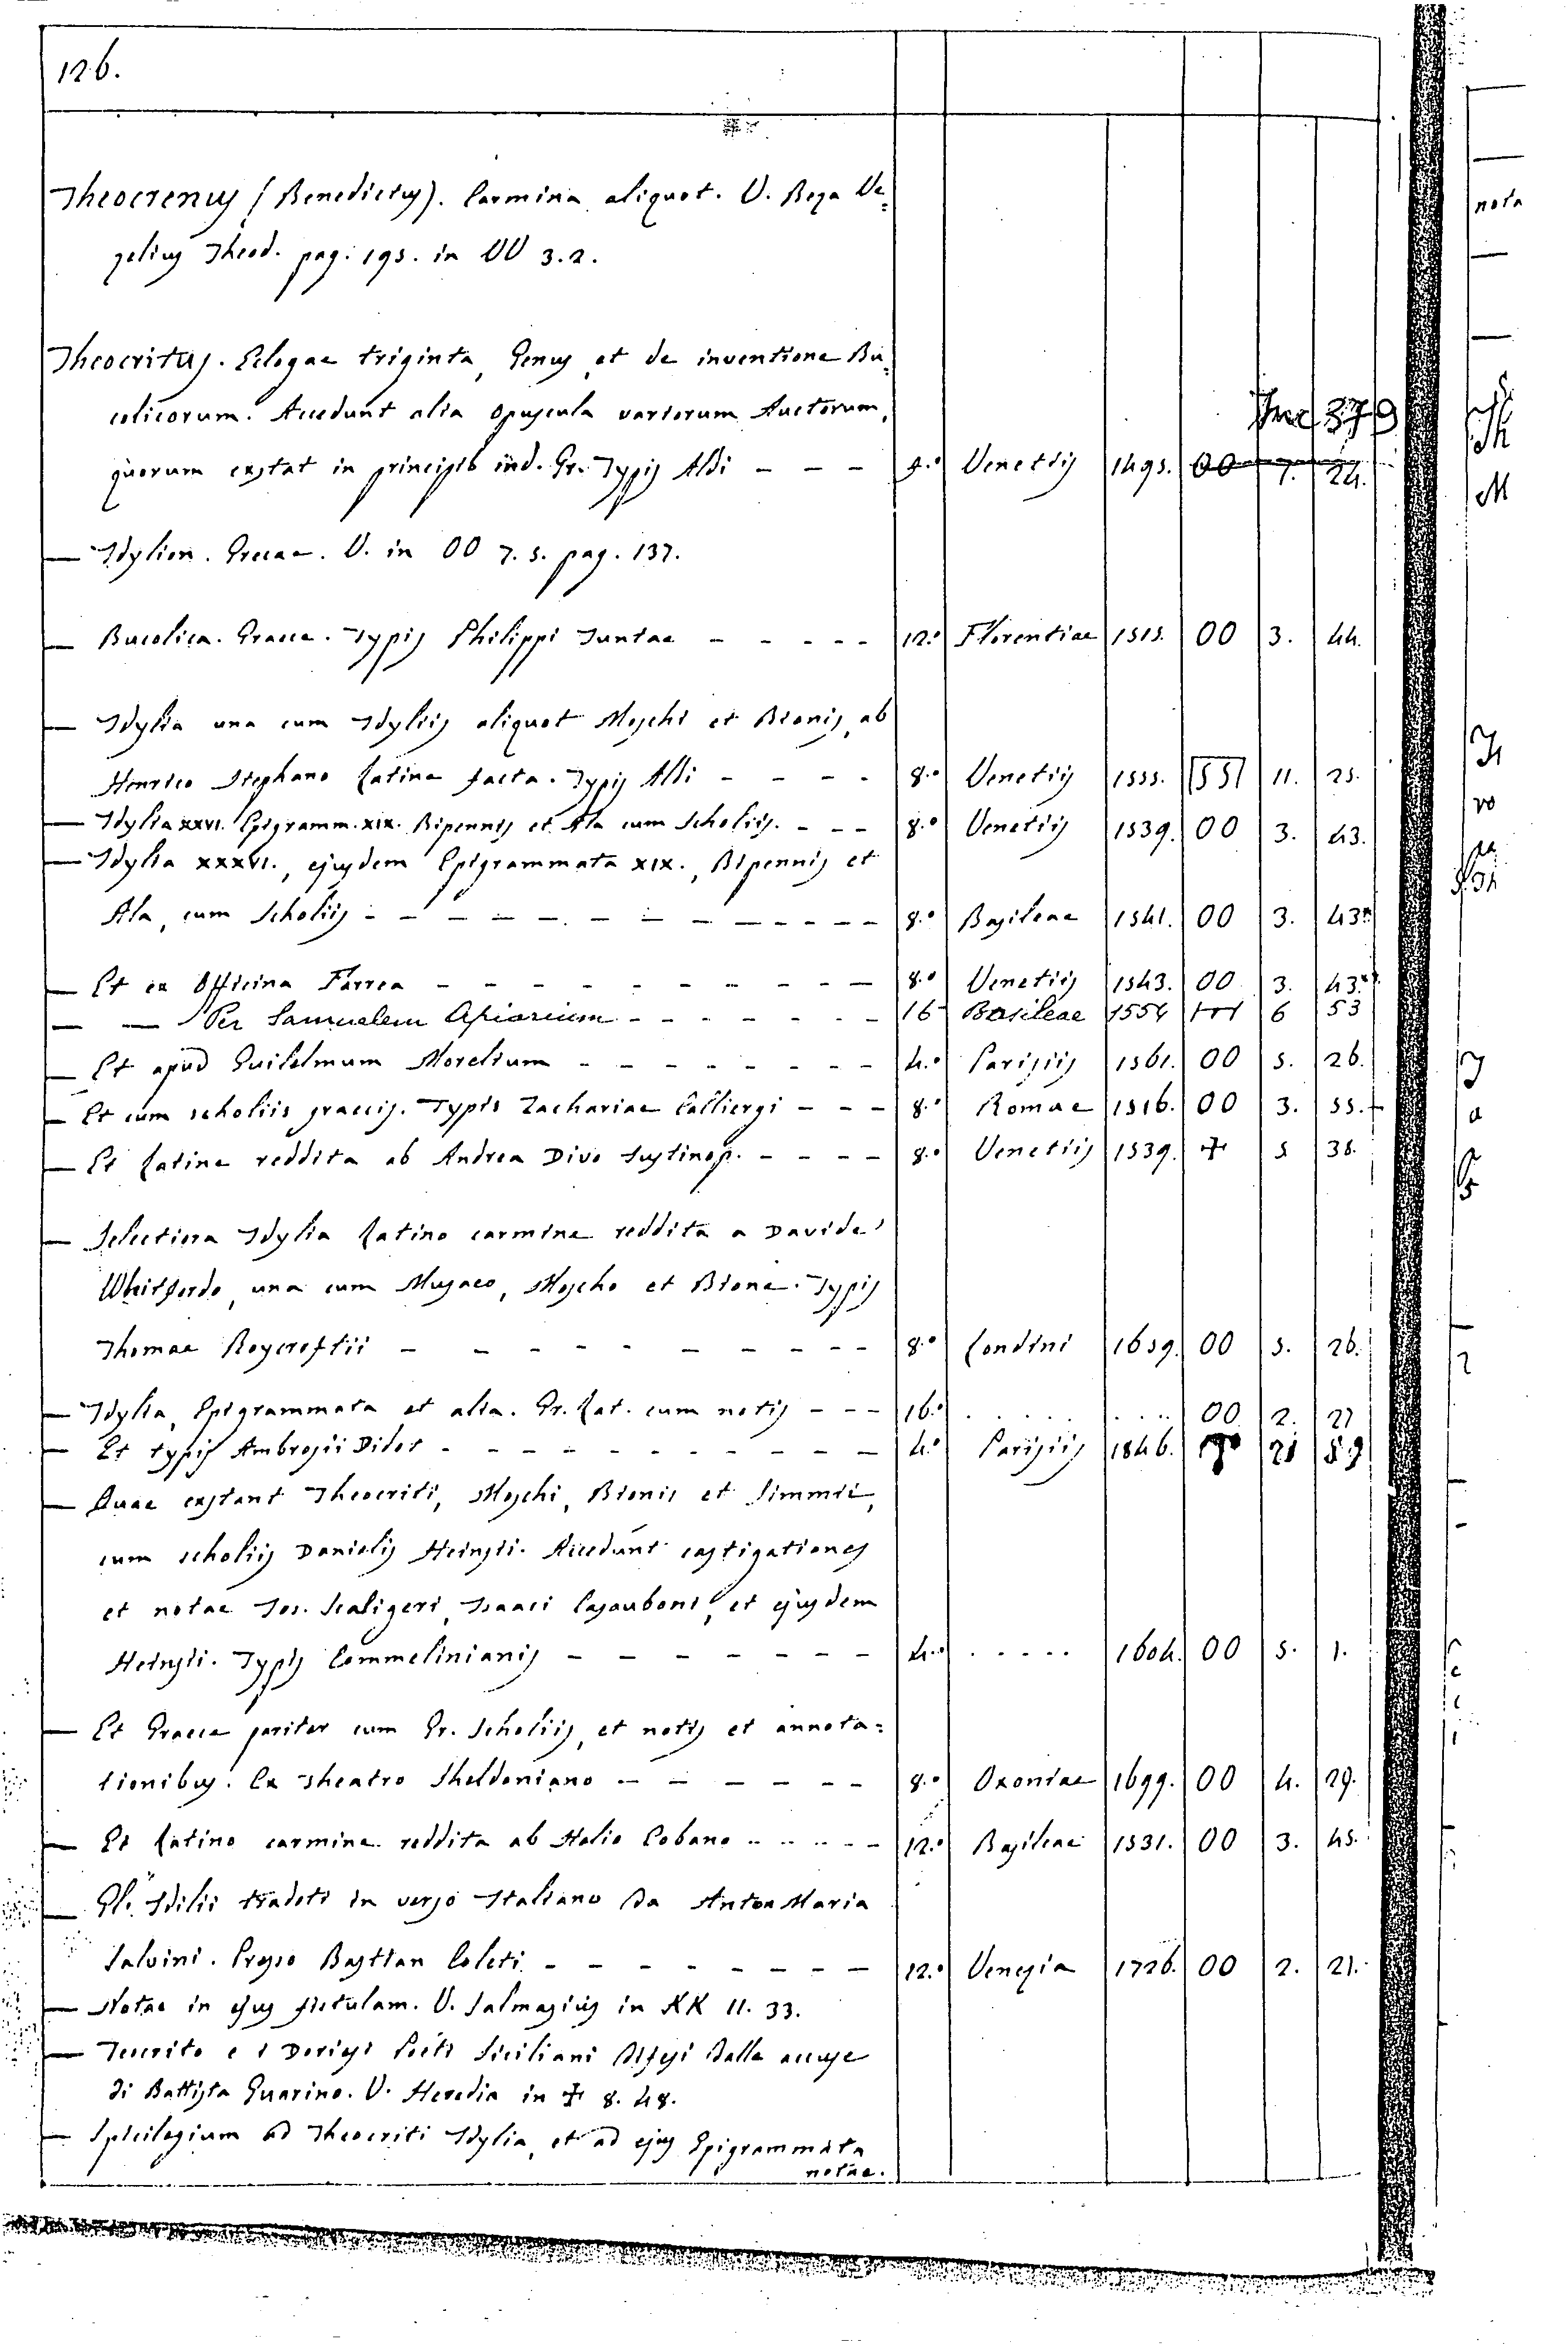 126.
Theocrenus (Benedictus). Carmina aliquot. V. Beza Ve=
zelius Theod. pag. 195. in VV 3. 2.
Theocritus. Eclogae triginta, Genus, et de inventione Bu=
colicorum. Accedunt alia opuscula variorum Auctorum,
Inc 379
quorum extat in principio ind. Gr. Typis Aldi - - - Venetiis 1495. OO 7. 24.
— Idylion. Graece. V. in OO 7. 5. pag. 137.
— Bucolica. Graece. Typis Philippi Juntae - - - - - 12.° Florentiae 1515. OO 3. 44.
— Idylia una cum Idyliis aliquot Moschi et Bionis, ab
Henrico Stephano latina facta. Typis Aldi - - - - 8.° Venetiis 1555. SS 11. 25.
— Idylia XXVI. Epigramm. XIX. Bipennis et Ala cum Scholiis. - - - 8.° Venetiis 1539. OO 3. 43.
— Idylia XXXVI., ejusdem Epigrammata XIX., Bipennis et
Ala, cum Scholiis - - - - - - - - - - - - 8.° Basileae 1541. OO 3. 43*
— Et ex Officina Farrea - - - - - - - - - 8.° Venetiis 1543. OO 3. 43.**
— — Per Samuelem Apiarium - - - - - - - 16 Basileae 1554 6 53
— Et apud Guilelmum Morelium - - - - - - - - 4.° Parisiis 1561. OO 5. 26.
— Et cum scholiis graecis. Typis Zachariae Calliergi - - - 8.° Romae 1516. OO 3. 55.+
— Et latine reddita ab Andrea Divo Justinop. - - - - 8.° Venetiis 1539. ✝ 5 38.
— Selectiora Idylia latino carmine reddita a Davide
Whitfordo, una cum Musaeo, Moscho et Bione. Typis
Thomae Roycroftii - - - - - - - - - - 8.° Londini 1659. OO 5. 26.
— Idylia, Epigrammata et alia. Gr. Lat. cum notis - - - 16.° . . . . . . . . . OO 2. 27
— Et typis Ambrosii Didot - - - - - - - - - - 4.° Parisiis 1846. 21 59
— Quae extant Theocriti, Moschi, Bionis et Simmii,
cum scholiis Danielis Heinsii. Accedunt castigationes
et notae Jos. Scaligeri, Isaaci Casauboni, et ejusdem
Heinsii. Typis Commelinianis - - - - - - - 4.° . . . . . 1604. OO 5. 1.
— Et Graece pariter cum Gr. Scholiis, et notis et annota=
tionibus. Ex Theatro Sheldoniano - - - - - - 8.° Oxoniae 1699. OO 4. 29.
— Et latino carmine reddita ab Helio Eobano - - - - - 12.° Basileae 1531. OO 3. 45.
— Gl' Idilii tradoti in verso Italiano da Anton Maria
Salvini. Preso Bastian Coleti - - - - - - - - 12.° Venezia 1726. OO 2. 21.
— Notae in ejus fistulam. V. Salmasius in KK 11. 33.
— Teocrito e i Dorici Poeti Siciliani difesi dalle accuse
di Battista Guarino. V. Heredia in ✝ 8. 48.
— Spicilegium ad Theocriti Idylia, et ad ejus Epigrammata
notae.
nota
Th
M